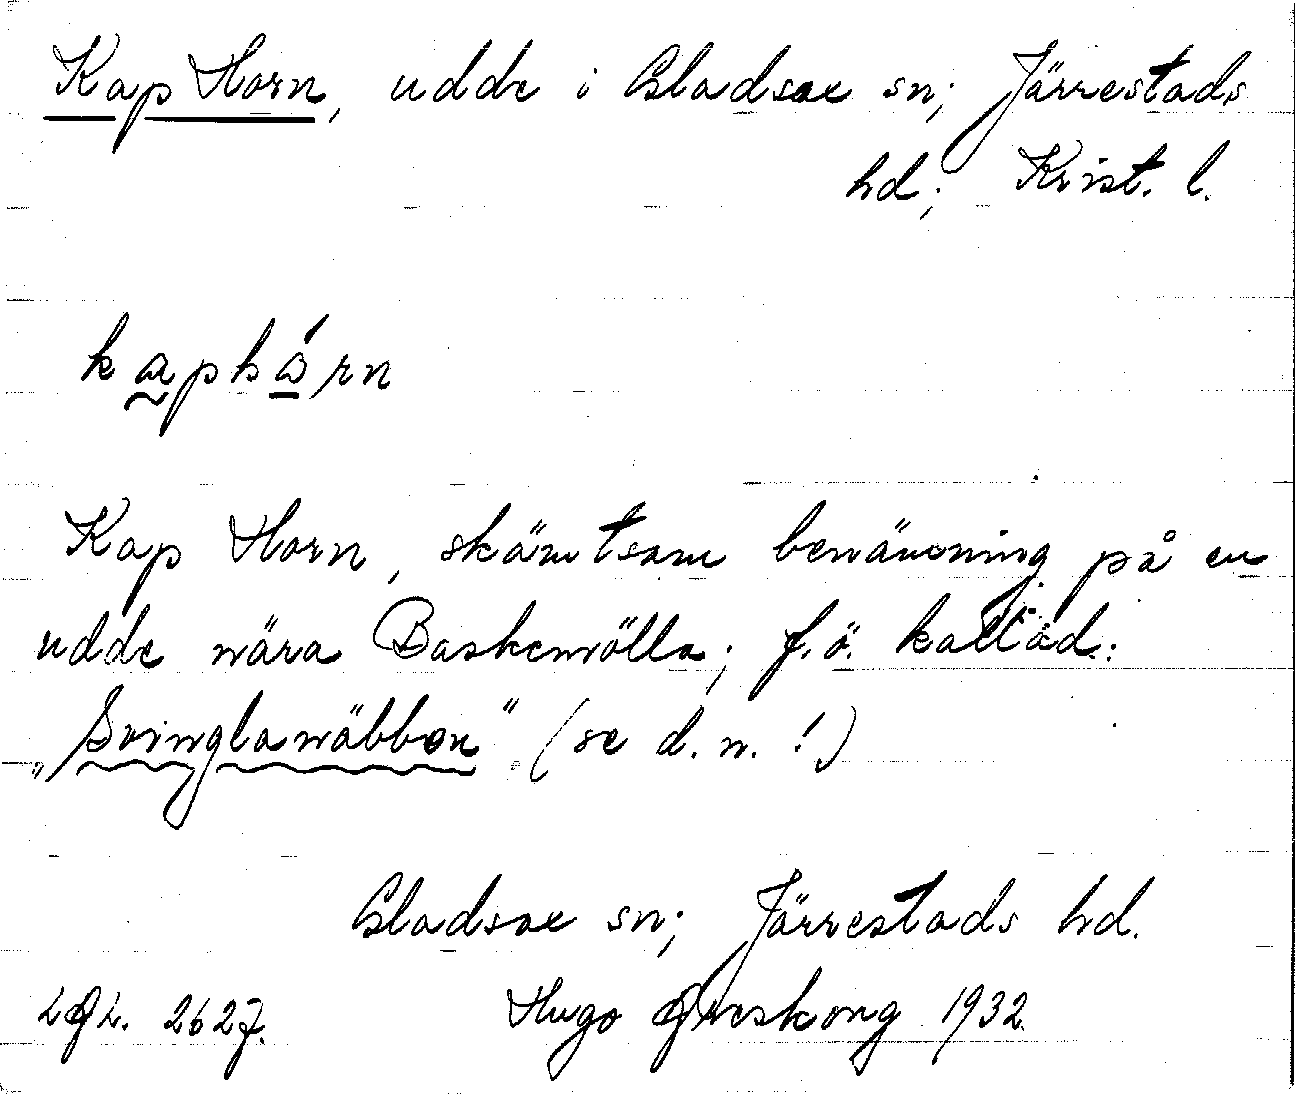 Kap Horn, udde i Gladsax sn; Järrestads
hd; Krist. l.
kaphårn
Kap Horn, skämtsam benämning på en
udde nära Baskemölla; f.ö. kallad:
„Svinglanäbben" (se d.n.!)
Gladsax sn; Järrestads hd.
2627. Hugo Areskoug 1932